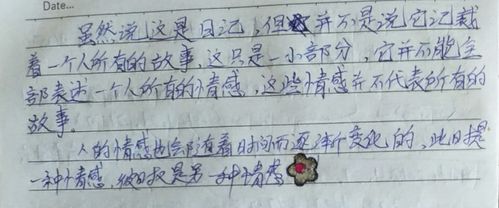 Date...
虽然说这是日记，但并不是说它记载
着一个人所有的故事，这只是一小部分，它并不能全
部表述一个人所有的情感，这些情感并不代表所有的
故事。
人的情感也会随着时间而逐渐变化的，此日是
一种情感，彼日是另一种情感